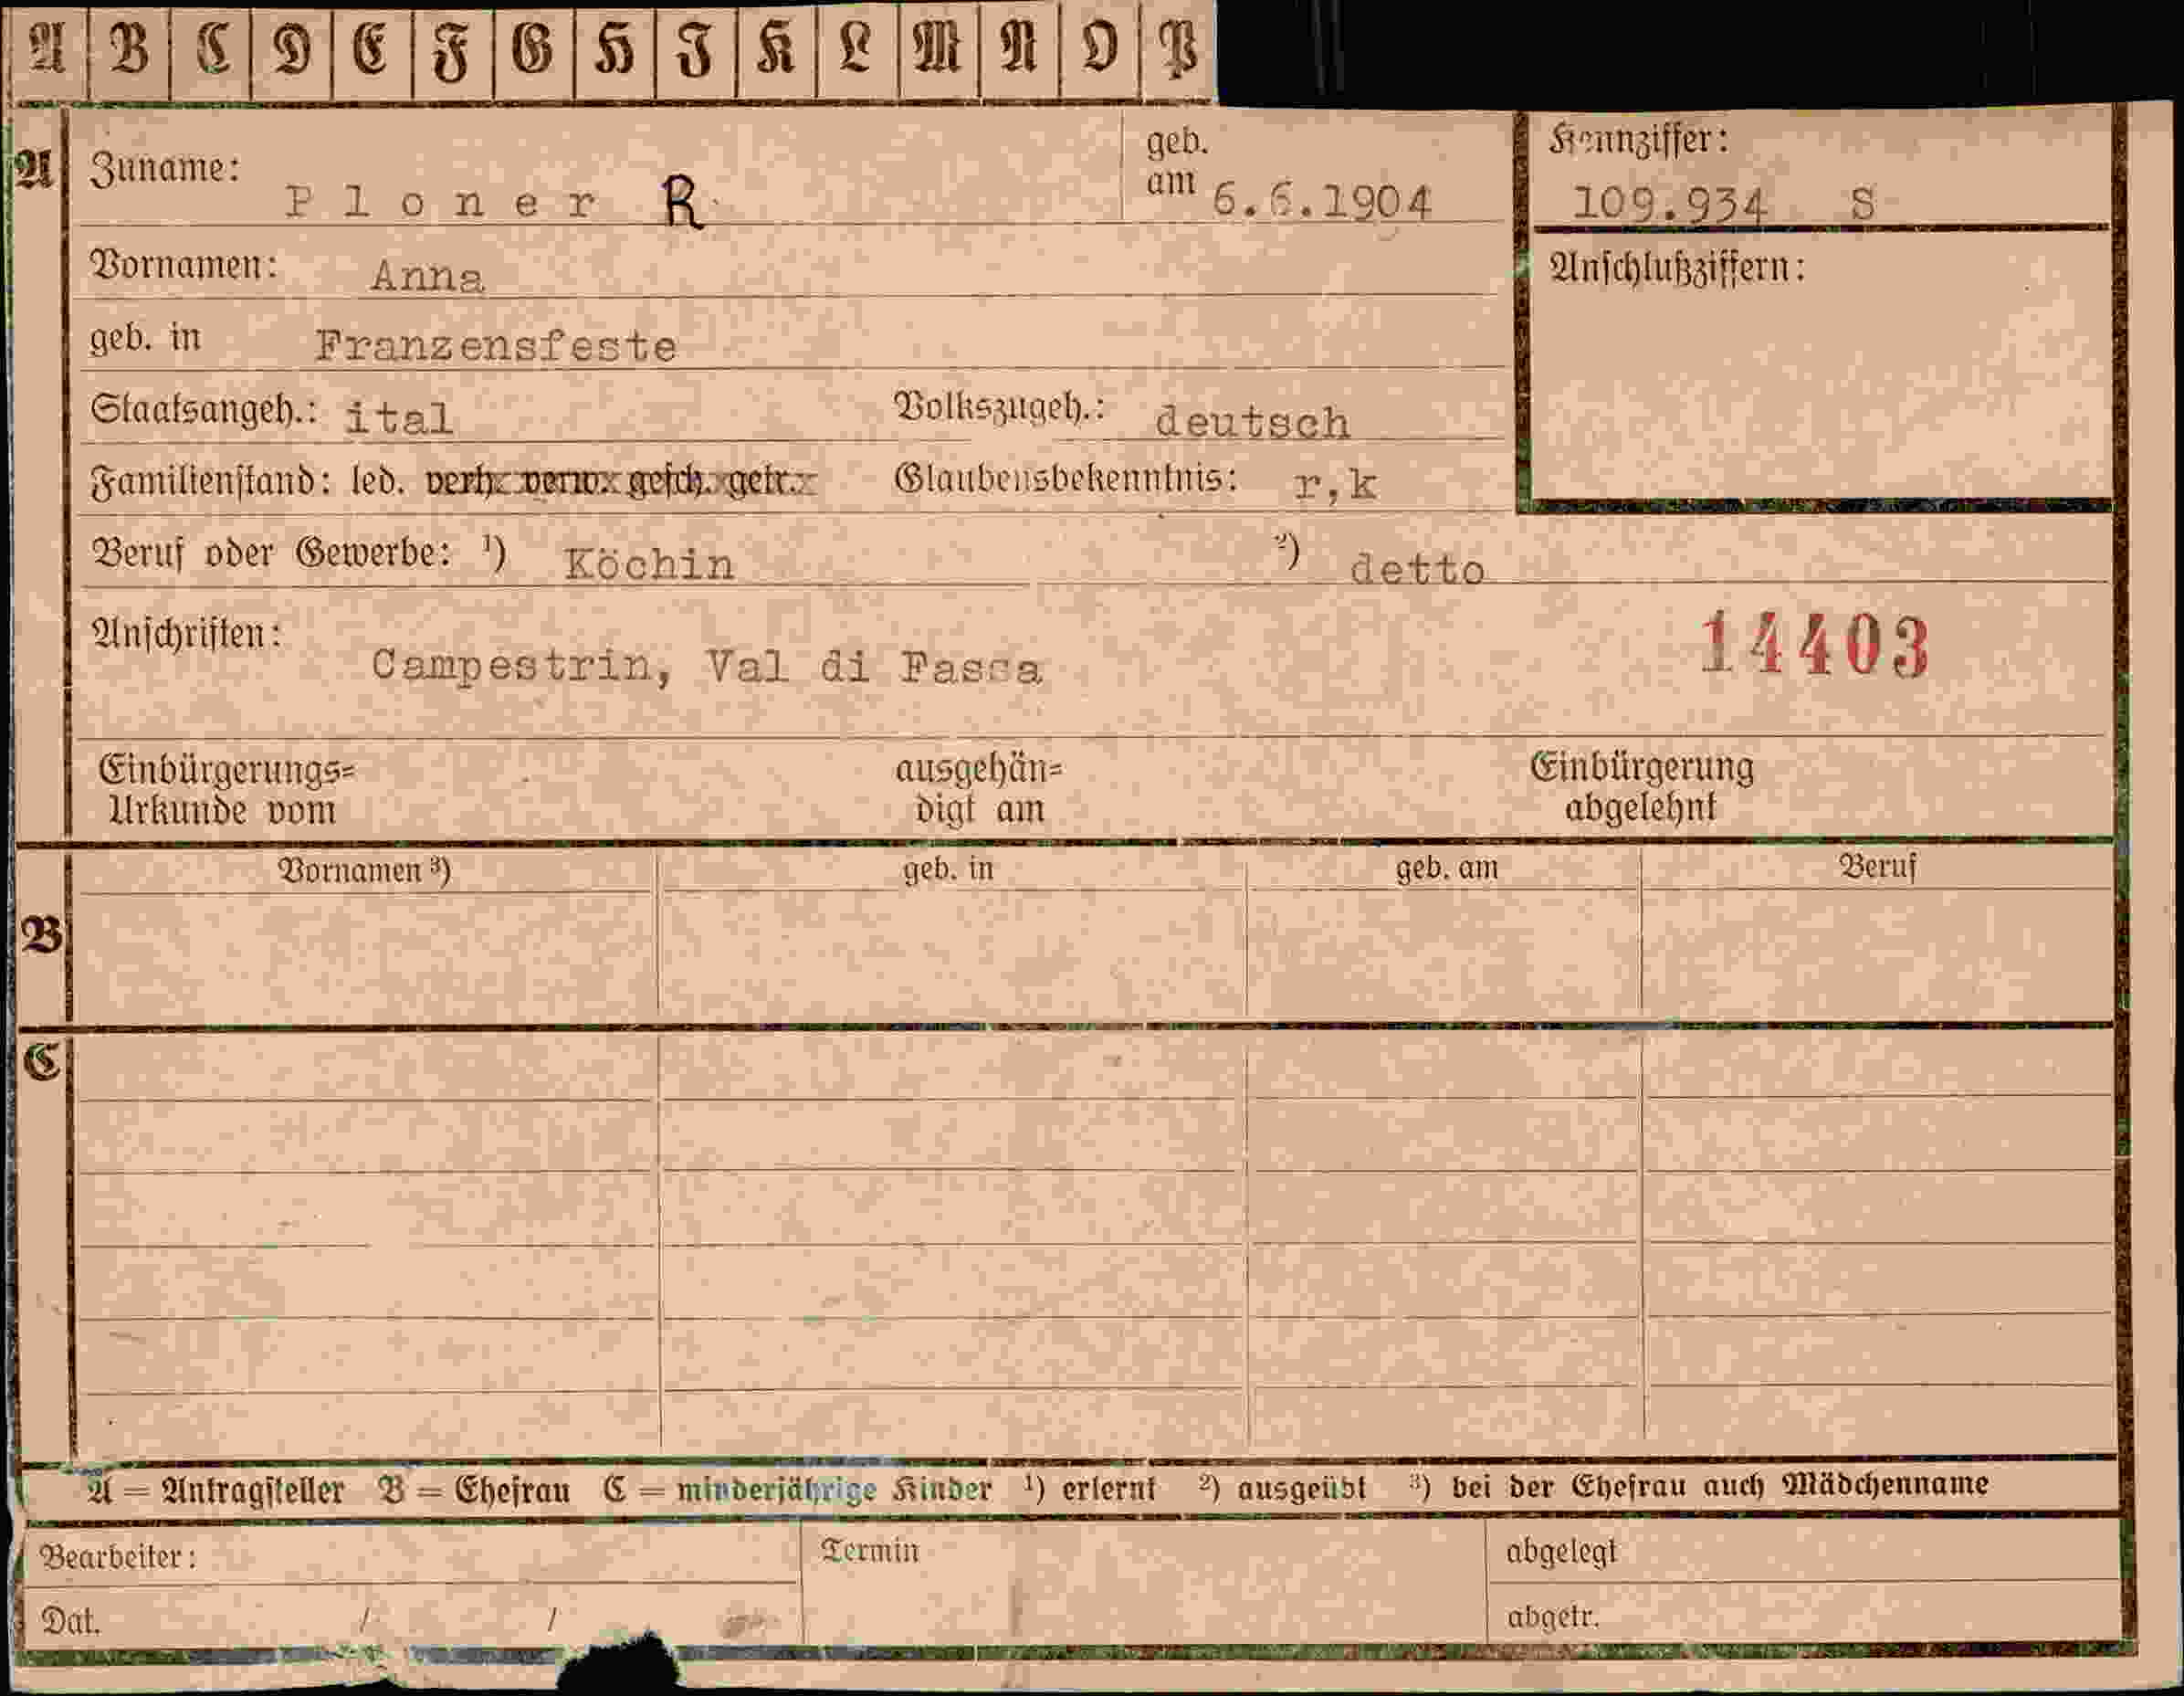 A B C D E F G H I K L M N O P
A Zuname: Ploner R geb. am 6.6.1904 Kennziffer: 109.934 S
Vornamen: Anna Anschlußziffern:
geb. in Franzensfeste
Staatsangeh.: ital Volkszugeh.: deutsch
Familienstand: led. verh. verw. gesch. getr. Glaubensbekenntnis: r,k
Beruf oder Gewerbe: ¹) Köchin ²) detto
Anschriften: Campestrin, Val di Fassa 14403
Einbürgerungs= ausgehän= Einbürgerung
Urkunde vom digt am abgelehnt
Vornamen ³) geb. in geb. am Beruf
B
C
A = Antragsteller B = Ehefrau C = minderjährige Kinder ¹) erlernt ²) ausgeübt ³) bei der Ehefrau auch Mädchenname
Bearbeiter: Termin abgelegt
Dat. / / abgetr.